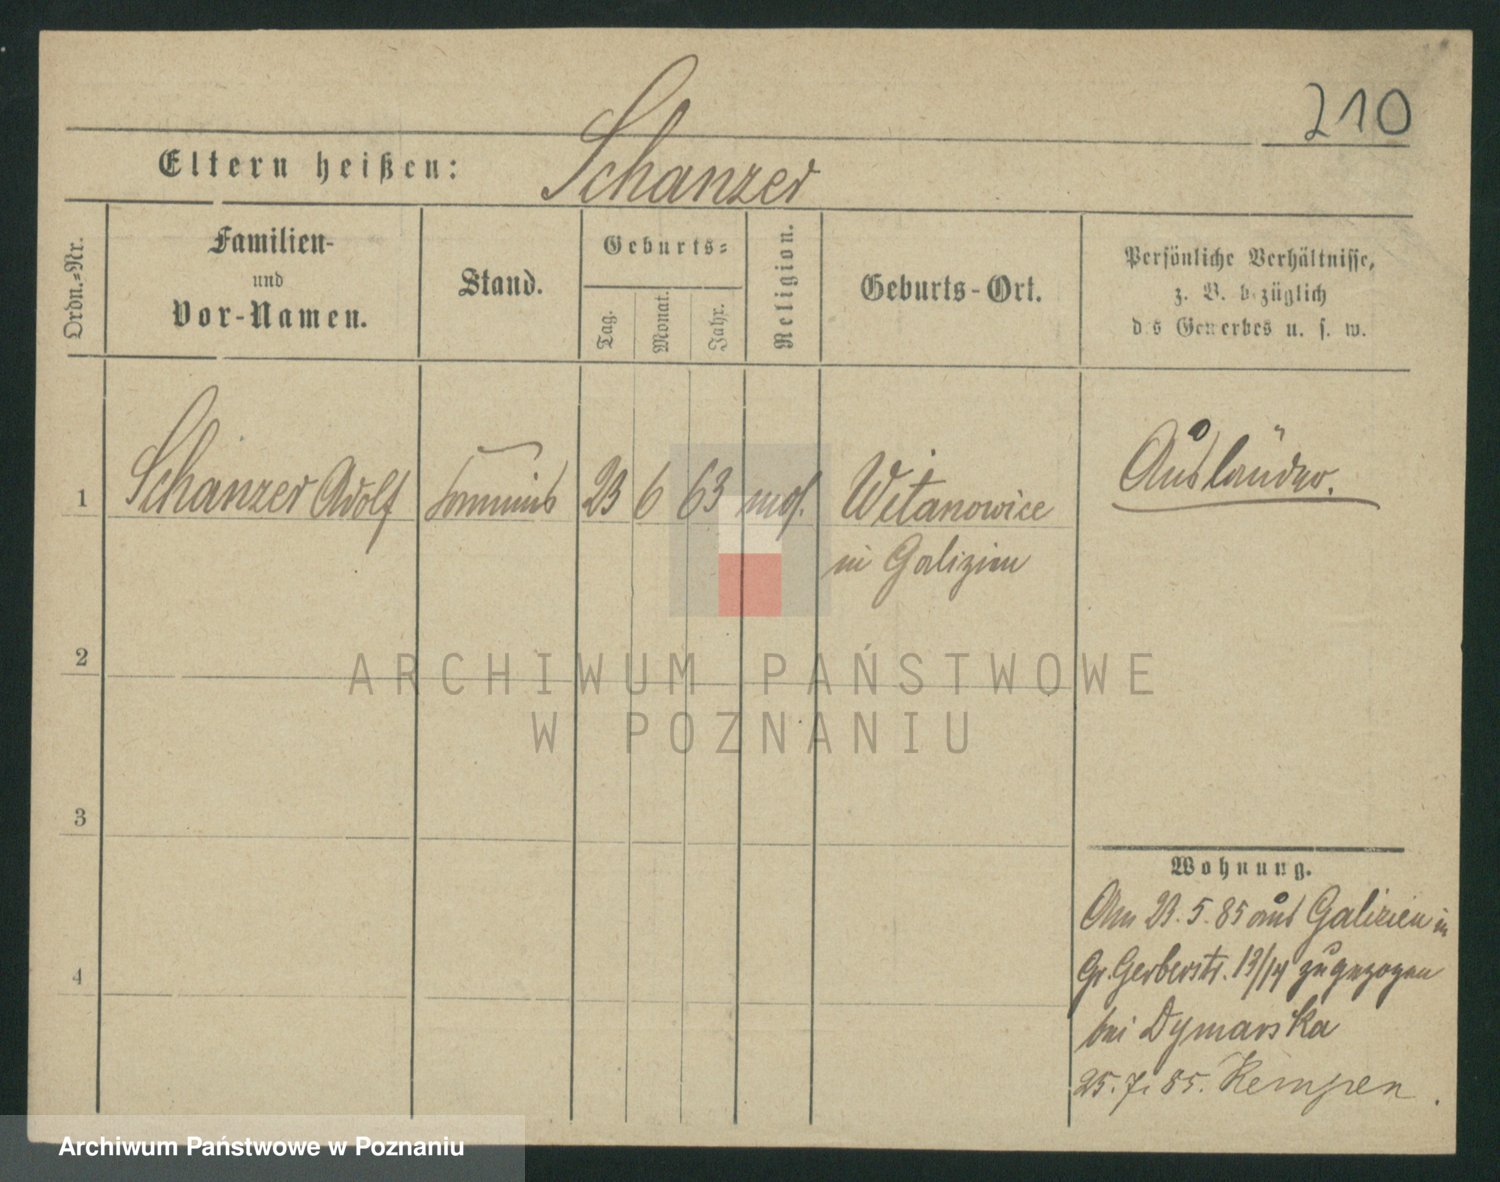 210
Eltern heißen: Schanzer
Ordn.-Nr.
Familien-
und
Vor-Namen.
Stand.
Geburts-
Tag.
Monat.
Jahr.
Religion.
Geburts-Ort.
Persönliche Verhältnisse,
z. B. bezüglich
des Gewerbes u. s. w.
1 Schanzer Adolf Commis 23 6 63 mos. Witanowice
in Galizien
Ausländer.
2
3
4
Wohnung.
Am 23.5.85 aus Galizien in
Gr. Gerberstr. 13/14 zugezogen
bei Dymarska
25.7.85. Kempen.
ARCHIWUM PAŃSTWOWE
W POZNANIU
Archiwum Państwowe w Poznaniu